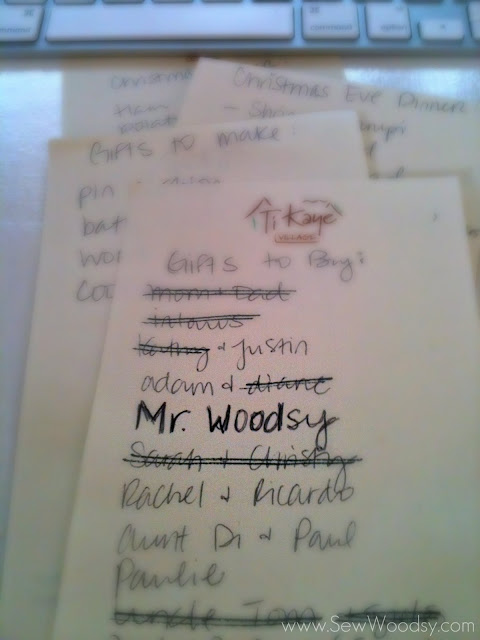 Christmas
Christmas Eve Dinner
ham
Gifts to make:
pin
bat
Ti Kaye
VILLAGE
Gifts to Buy:
mom & Dad
inlaws
Kathy & Justin
adam & diane
Mr. Woodsy
Sarah & Christiy
Rachel & Ricardo
Aunt Di & Paul
Paulie
Uncle Tom
www.SewWoodsy.com